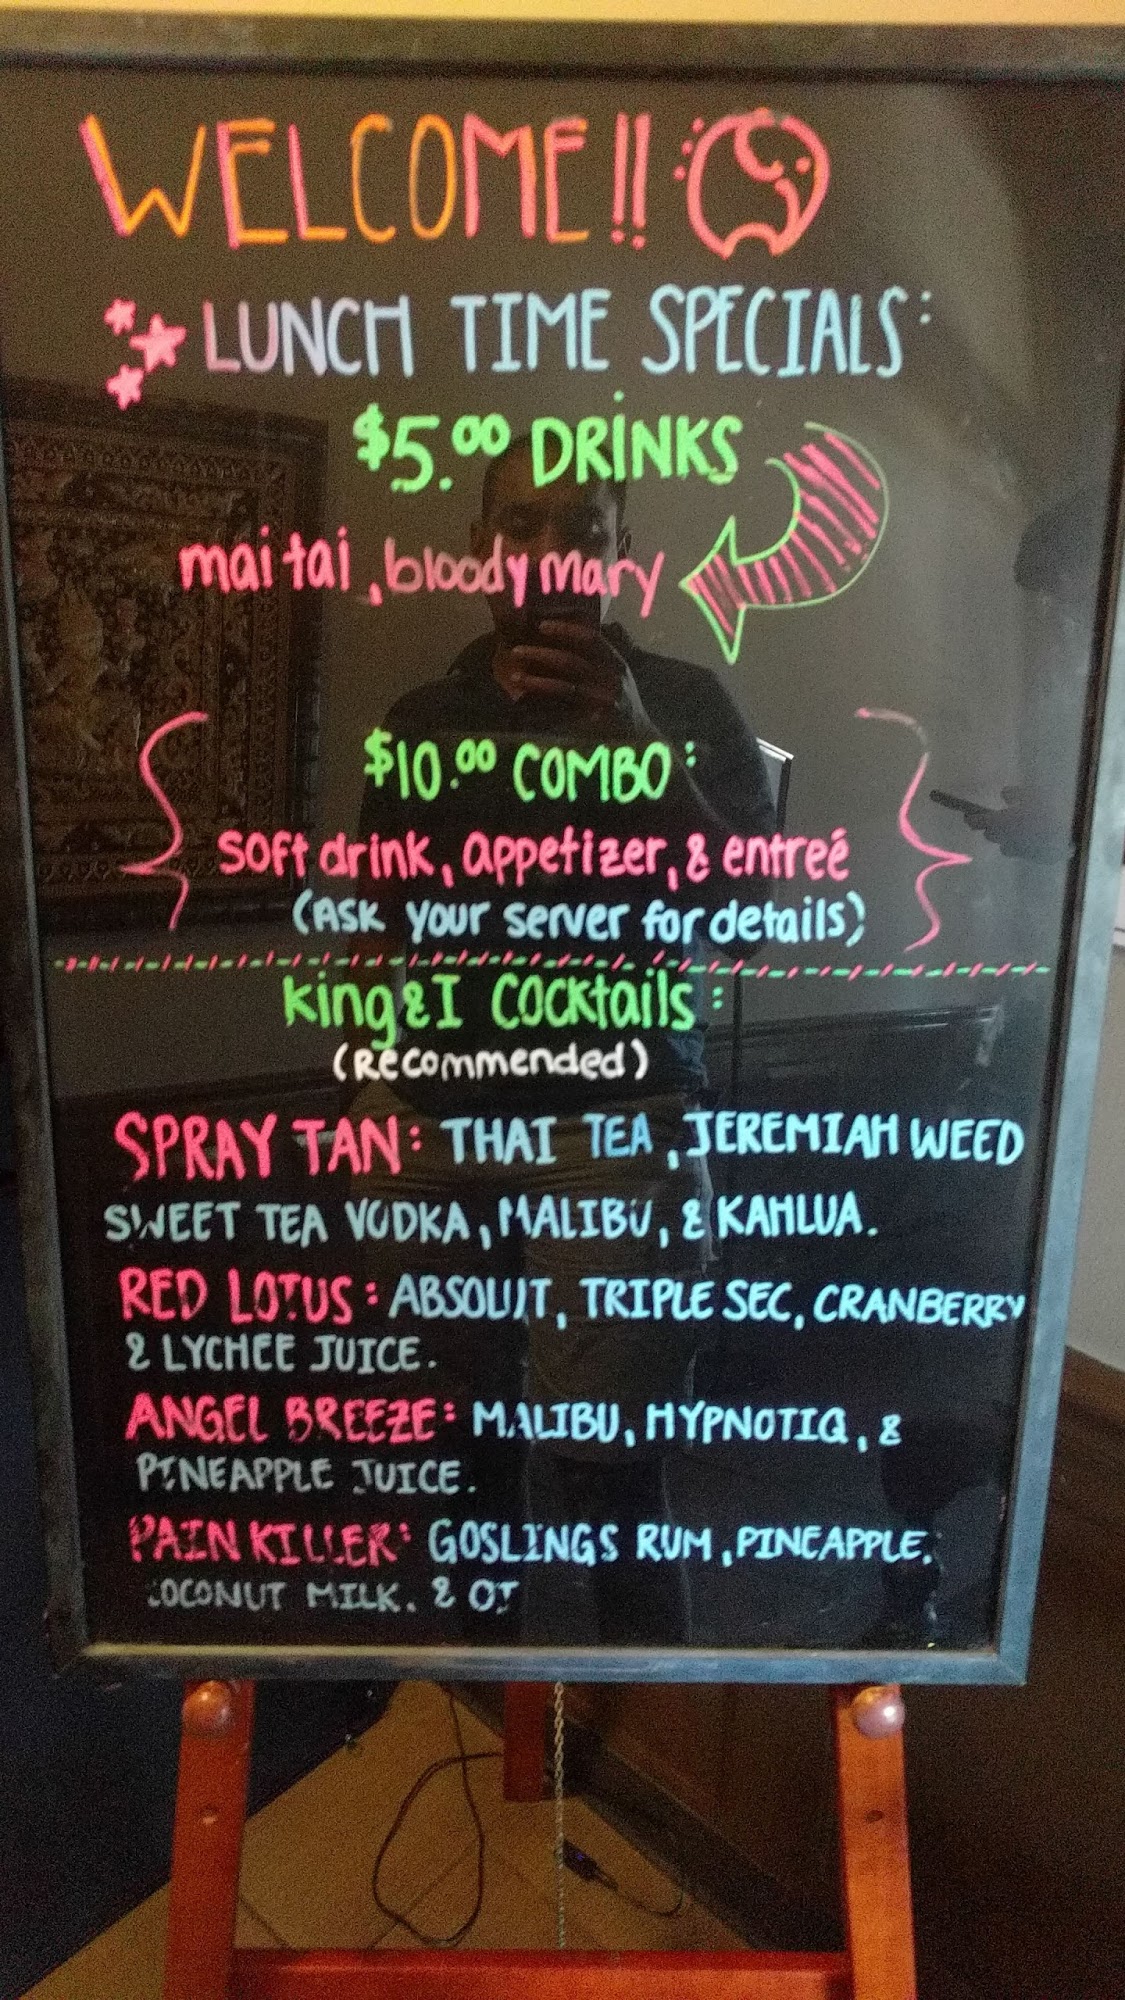 WELCOME!!
LUNCH TIME SPECIALS:
$5.00 DRINKS
mai tai, bloody mary
$10.00 COMBO:
soft drink, appetizer, & entreé
(ASK your server for details)
King & I COCKtails:
(Recommended)
SPRAY TAN: THAI TEA, JEREMIAH WEED
SWEET TEA VODKA, MALIBU, & KAHLUA.
RED LOTUS: ABSOLUT, TRIPLE SEC, CRANBERRY
& LYCHEE JUICE.
ANGEL BREEZE: MALIBU, HYPNOTIQ, &
PINEAPPLE JUICE.
PAIN KILLER: GOSLINGS RUM, PINEAPPLE,
COCONUT MILK. & OJ